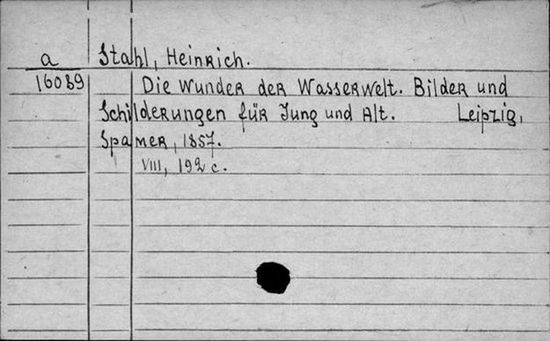 a Stahl, Heinrich.
16089 Die Wunder der Wasserwelt. Bilder und
Schilderungen für Jung und Alt. Leipzig,
Spamer, 1857.
VIII, 192 c.